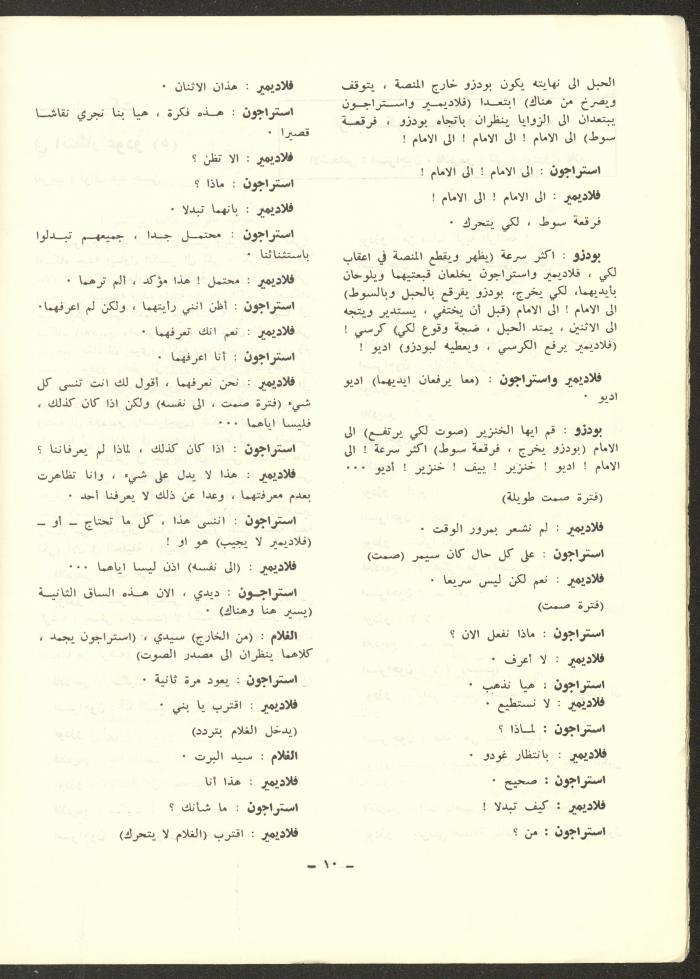 الحبل الى نهايته يكون بودزو خارج المنصة ، يتوقف
ويصرخ من هناك) ابتعدا (فلاديمير واستراجون
يبتعدان الى الزوايا ينظران باتجاه بودزو ، فرقعة
سوط) الى الامام ! الى الامام ! الى الامام !
استراجون : الى الامام ! الى الامام !
فلاديمير : الى الامام ! الى الامام !
فرقعة سوط ، لكي يتحرك .
بودزو : اكثر سرعة (يظهر ويقطع المنصة في اعقاب
لكي ، فلاديمير واستراجون يخلعان قبعتيهما ويلوحان
بأيديهما، لكي يخرج، بودزو يفرقع بالحبل وبالسوط)
الى الامام ! الى الامام (قبل أن يختفي ، يستدير ويتجه
الى الاثنين ، يمتد الحبل ، ضجة وقوع لكي) كرسي !
(فلاديمير يرفع الكرسي ، ويعطيه لبودزو) اديو !
فلاديمير واستراجون : (معا يرفعان ايديهما) اديو
اديو .
بودزو : قم ايها الخنزير (صوت لكي يرتفع) الى
الامام (بودزو يخرج ، فرقعة سوط) اكثر سرعة ! الى
الامام ! اديو ! خنزير ! ييف ! خنزير ! أديو ...
(فترة صمت طويلة)
فلاديمير : لم نشعر بمرور الوقت .
استراجون : على كل حال كان سيمر (صمت)
فلاديمير : نعم لكن ليس سريعا .
(فترة صمت)
استراجون : ماذا نفعل الان ؟
فلاديمير : لا أعرف .
استراجون : هيا نذهب .
فلاديمير : لا نستطيع .
استراجون : لماذا ؟
فلاديمير : بانتظار غودو .
استراجون : صحيح .
فلاديمير : كيف تبدلا !
استراجون : من ؟
فلاديمير : هذان الاثنان .
استراجون : هذه فكرة ، هيا بنا نجري نقاشا
قصيرا .
فلاديمير : الا تظن ؟
استراجون : ماذا ؟
فلاديمير : بانهما تبدلا .
استراجون : محتمل جدا ، جميعهم تبدلوا
باستثنائنا .
فلاديمير : محتمل ! هذا مؤكد ، ألم ترهما .
استراجون : أظن انني رأيتهما ، ولكن لم اعرفهما.
فلاديمير : نعم انك تعرفهما .
استراجون : أنا اعرفهما .
فلاديمير : نحن نعرفهما ، أقول لك انت تنسى كل
شيء (فترة صمت ، الى نفسه) ولكن اذا كان كذلك ،
فليسا اياهما ...
استراجون : اذا كان كذلك ، لماذا لم يعرفاننا ؟
فلاديمير : هذا لا يدل على شيء ، وانا تظاهرت
بعدم معرفتهما ، وعدا عن ذلك لا يعرفنا أحد .
استراجون : اننسى هذا ، كل ما تحتاج ـ أو ـ
(فلاديمير لا يجيب) هو او !
فلاديمير : (الى نفسه) اذن ليسا اياهما ...
استراجون : ديدي ، الان هذه الساق الثانية
(يسير هنا وهناك) .
الغلام : (من الخارج) سيدي ، (استراجون يجمد ،
كلاهما ينظران الى مصدر الصوت)
استراجون : يعود مرة ثانية .
فلاديمير : اقترب يا بني .
(يدخل الغلام بتردد)
الغلام : سيد البرت .
فلاديمير : هذا أنا
استراجون : ما شأنك ؟
فلاديمير : اقترب (الغلام لا يتحرك)
ـ ١٠ ـ